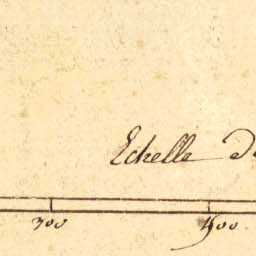 Echelle De
300
400